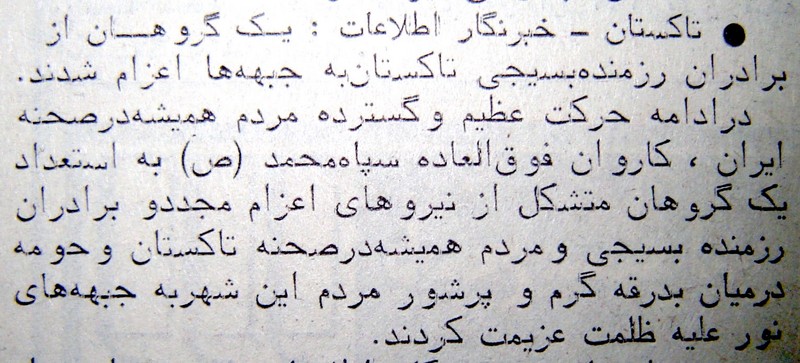 ● تاکستان - خبرنگار اطلاعات : یک گروهان از
برادران رزمنده‌بسیجی تاکستان‌به جبهه‌ها اعزام شدند.
درادامه حرکت عظیم وگسترده مردم همیشه‌درصحنه
ایران ، کاروان فوق‌العاده سپاه‌محمد (ص) به استعداد
یک گروهان متشکل از نیروهای اعزام مجددو برادران
رزمنده بسیجی و مردم همیشه‌درصحنه تاکستان و حومه
درمیان بدرقه گرم و پرشور مردم این شهربه جبهه‌های
نور علیه ظلمت عزیمت کردند.